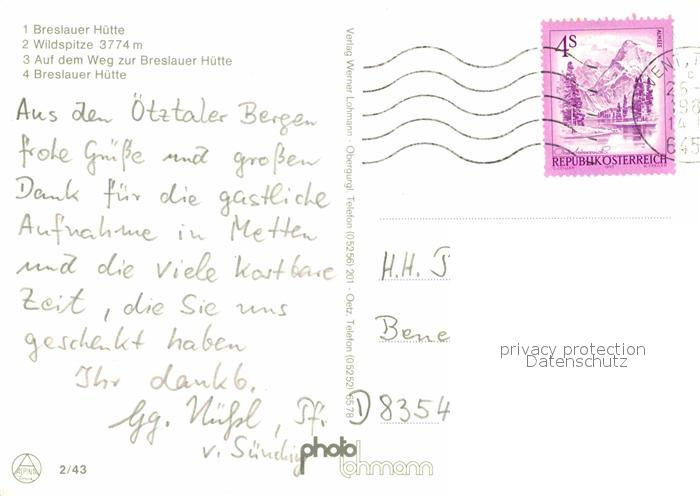 1 Breslauer Hütte
2 Wildspitze 3774 m
3 Auf dem Weg zur Breslauer Hütte
4 Breslauer Hütte
Aus den Ötztaler Bergen
frohe Grüße und großen
Dank für die gastliche
Aufnahme in Metten
und die viele kostbare
Zeit, die Sie uns
geschenkt haben
Ihr dankb.
Gg. Nüßl, Pfr.
v. Sünching
2/43
Verlag Werner Lohmann · Obergurgl, Telefon (05256) 201 · Oetz, Telefon (05252) 6578
photo
lohmann
4S
ALMSEE
REPUBLIK ÖSTERREICH
VENT, T
645
H.H. P
Bene
D 8354
privacy protection
Datenschutz